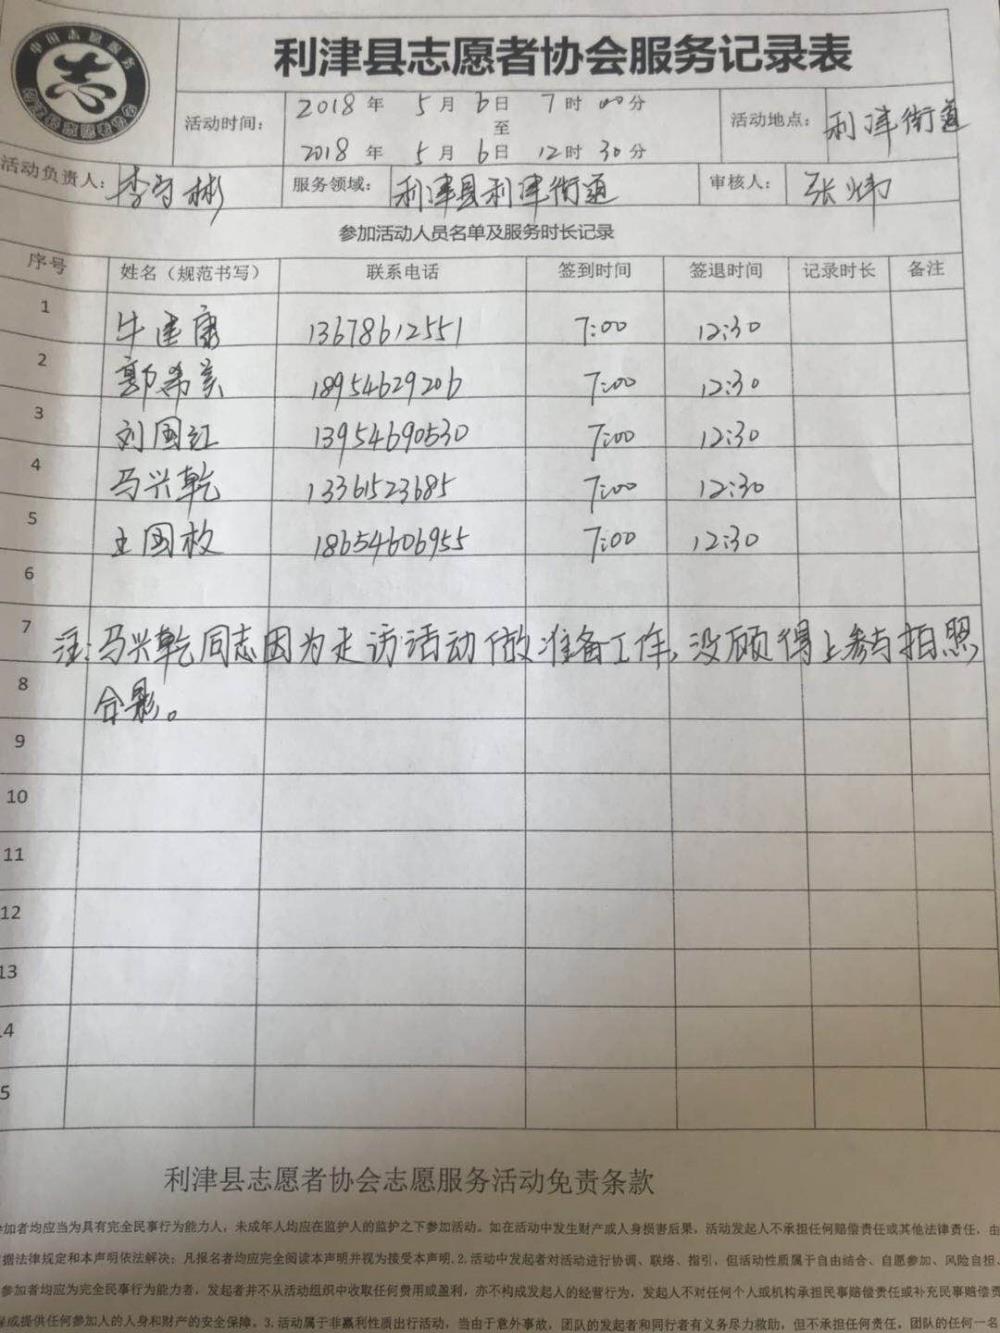 中国志愿服务
志
利津县志愿者协会服务记录表
活动时间：
2018年 5月 6日 7时 00分
至
2018年 5月 6日 12时 30分
活动地点： 利津街道
活动负责人： 李守彬 服务领域： 利津县利津街道 审核人： 张炜
参加活动人员名单及服务时长记录
序号 姓名（规范书写） 联系电话 签到时间 签退时间 记录时长 备注
1 牛建康 13678612551 7:00 12:30
2 郭希美 18954629206 7:00 12:30
3 刘国红 13954690530 7:00 12:30
4 马兴乾 13361523685 7:00 12:30
5 王国枚 18654606955 7:00 12:30
6
7 注：马兴乾同志因为走访活动做准备工作，没顾得上参与拍照
8 合影。
9
10
11
12
13
14
15
利津县志愿者协会志愿服务活动免责条款
参加者均应当为具有完全民事行为能力人，未成年人均应在监护人的监护之下参加活动。如在活动中发生财产或人身损害后果，活动发起人不承担任何赔偿责任或其他法律责任，由
据法律规定和本声明依法解决；凡报名者均应完全阅读本声明并视为接受本声明.2.活动中发起者对活动进行协调、联络、指引，但活动性质属于自由结合、自愿参加、风险自担、
参加者均应为完全民事行为能力者，发起者并不从活动组织中收取任何费用或盈利，亦不构成发起人的经营行为，发起人不对任何个人或机构承担民事赔偿责任或补充民事赔偿责
保或提供任何参加人的人身和财产的安全保障。3.活动属于非赢利性质出行活动，当由于意外事故，团队的发起者和同行者有义务尽力救助，但不承担任何责任，团队的任何一名